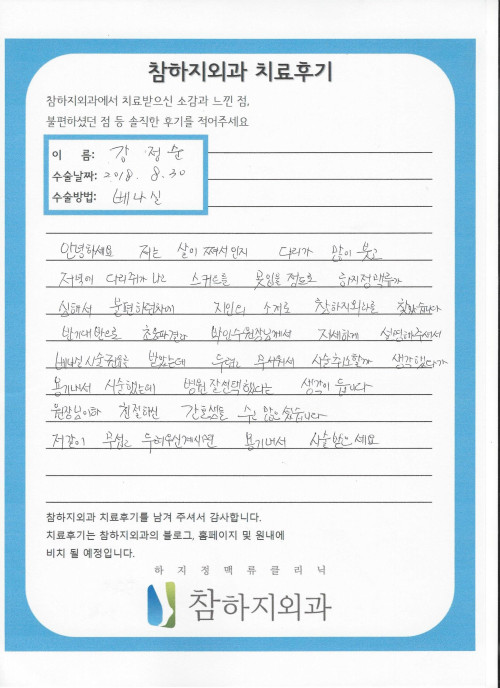 참하지외과 치료후기
참하지외과에서 치료받으신 소감과 느낀 점,
불편하셨던 점 등 솔직한 후기를 적어주세요
이 름: 강 정순
수술날짜: 2018. 8. 30
수술방법: 베나실
안녕하세요 저는 살이 쪄서인지 다리가 많이 붓고
저녁에 다리쥐가 나고 스커트를 못입을 정도로 하지정맥류가
심해서 불편하던차에 지인의 소개로 참하지외과를 찾았습니다
반가대만으로 초음파겸사 박인수원장님께서 자세하게 설명해주셔서
베나실 시술권유를 받았는데 두렵고 무서워서 시술취소할까 생각했다가
용기내서 시술했는데 병원 잘선택했다는 생각이 듭니다
원장님이하 친절하신 간호쌤들 수고 많으셨습니다
저같이 무섭고 두려우신계시면 용기내서 시술받으세요
참하지외과 치료후기를 남겨 주셔서 감사합니다.
치료후기는 참하지외과의 블로그, 홈페이지 및 원내에
비치 될 예정입니다.
하지정맥류클리닉
참하지외과